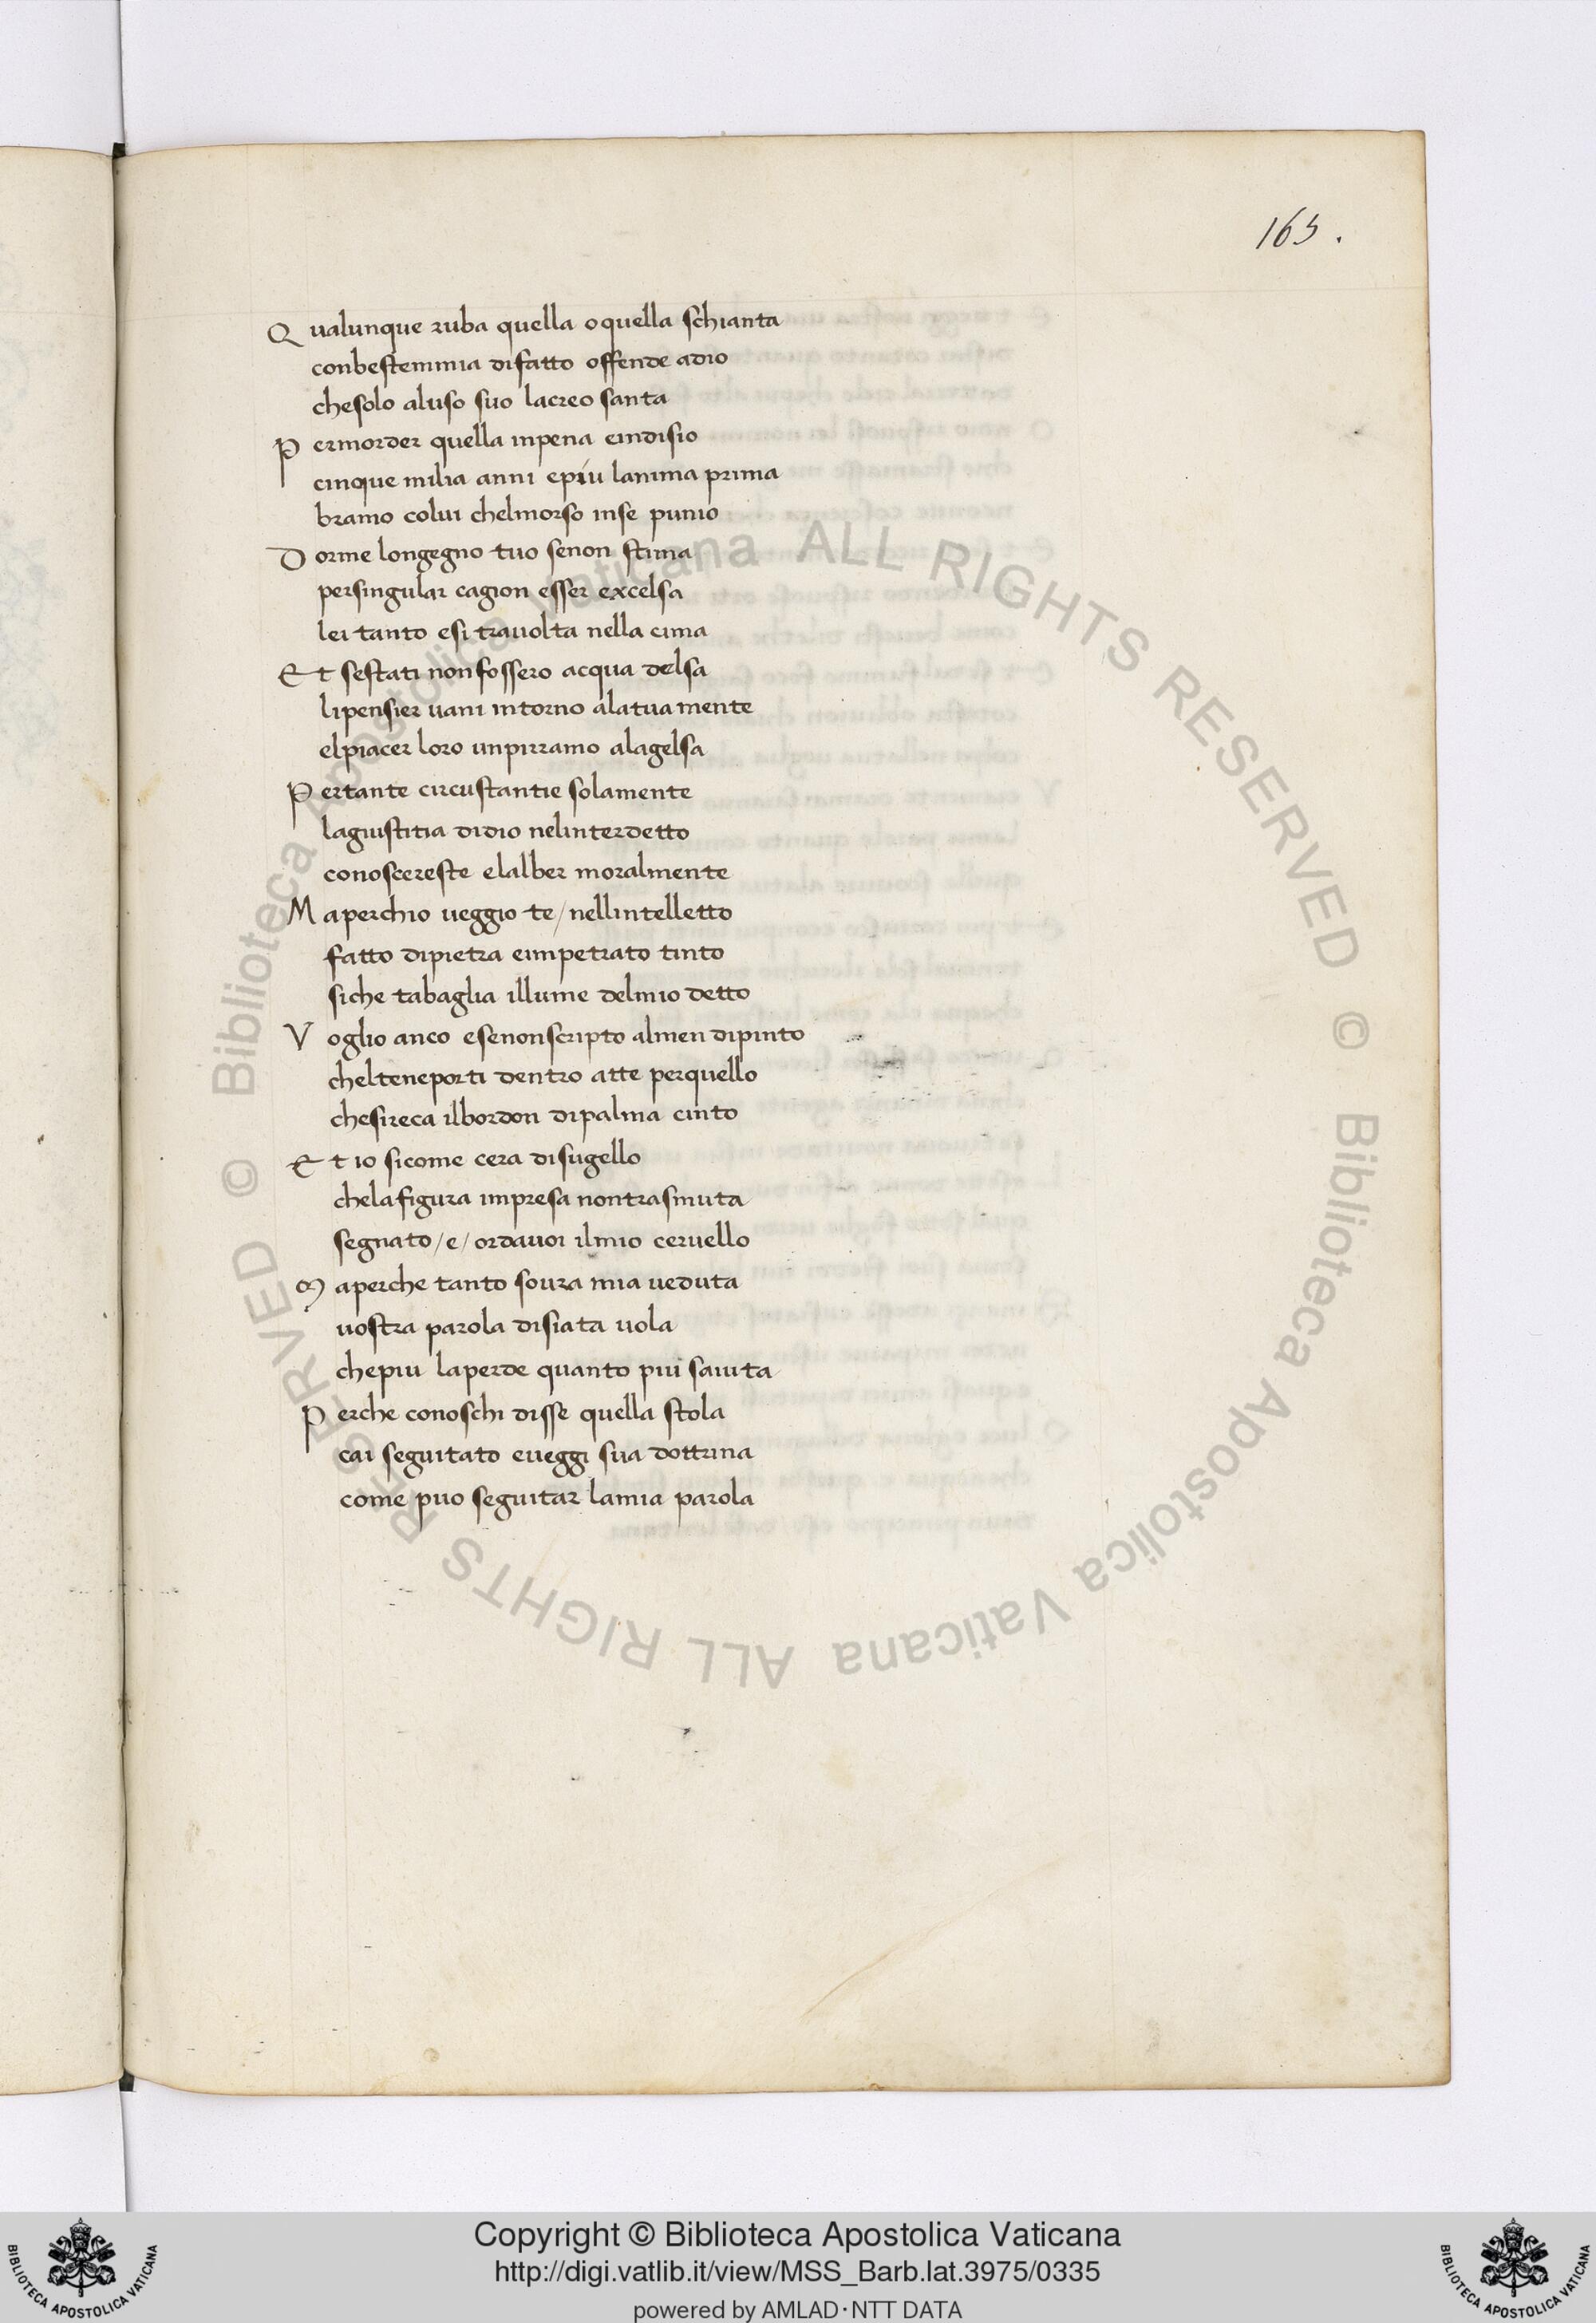 165.
Qualunque ruba quella oquella schianta
conbestemmia difatto offende adio
chesolo aluso suo lacreo santa
Permorder quella inpena eindisio
cinque milia anni epiu lanima prima
bramo colui chelmorso inse punio
Dorme longegno tuo senon stima
persingular cagion esser excelsa
lei tanto esi travolta nella cima
Et sestati nonfossero acqua delsa
lipensier vani intorno alatua mente
elpiacer loro unpirramo alagelsa
Pertante circustantie solamente
lagiustitia didio nelinterdetto
conoscereste elalber moralmente
Maperchio veggio te/nellintelletto
fatto dipietra eimpetrato tinto
siche tabaglia illume delmio detto
Voglio anco esenonscripto almen dipinto
chelteneporti dentro atte perquello
chesireca ilbordon dipalma cinto
Et io sicome cera disugello
chelafigura impresa nontrasmuta
segnato/e/ordavoi ilmio cervello
Maperche tanto sovra mia veduta
vostra parola disiata vola
chepiu laperde quanto piu saiuta
Perche conoschi disse quella stola
cai seguitato eveggi sua dottrina
come puo seguitar lamia parola
© Biblioteca Apostolica Vaticana ALL RIGHTS RESERVED © Biblioteca Apostolica Vaticana ALL RIGHTS RESERVED
Copyright © Biblioteca Apostolica Vaticana
http://digi.vatlib.it/view/MSS_Barb.lat.3975/0335
powered by AMLAD·NTT DATA
BIBLIOTECA APOSTOLICA VATICANA
BIBLIOTECA APOSTOLICA VATICANA